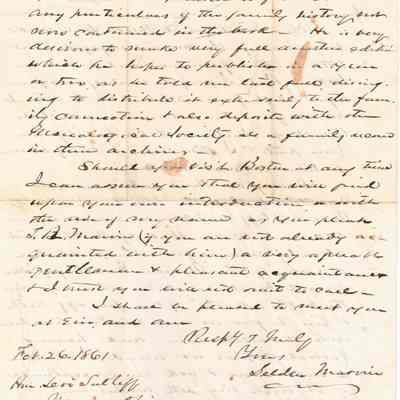 any particulars of the family history not
now contained in the book — He is very
desirous to make very full
which he hopes to publish in a year
or two as he told me last fall design-
ing to distribute it extensively to the fam-
ily connection & also deposit with the
Genealogical Society as a family record
in their archives —
Should you visit Boston at any time
I can assure you that you will find
upon your own introduction or with
the use of my name as you please
T. R. Marvin (if you are not already ac-
quainted with him) a very agreeable
gentleman & pleasant acquaintance
& I trust you will not omit to call —
I shall be pleased to meet you
at Erie and am
Respy & Truly
Yours
Selden Marvin
Feb. 26 1861
Hon Levi Sutliff